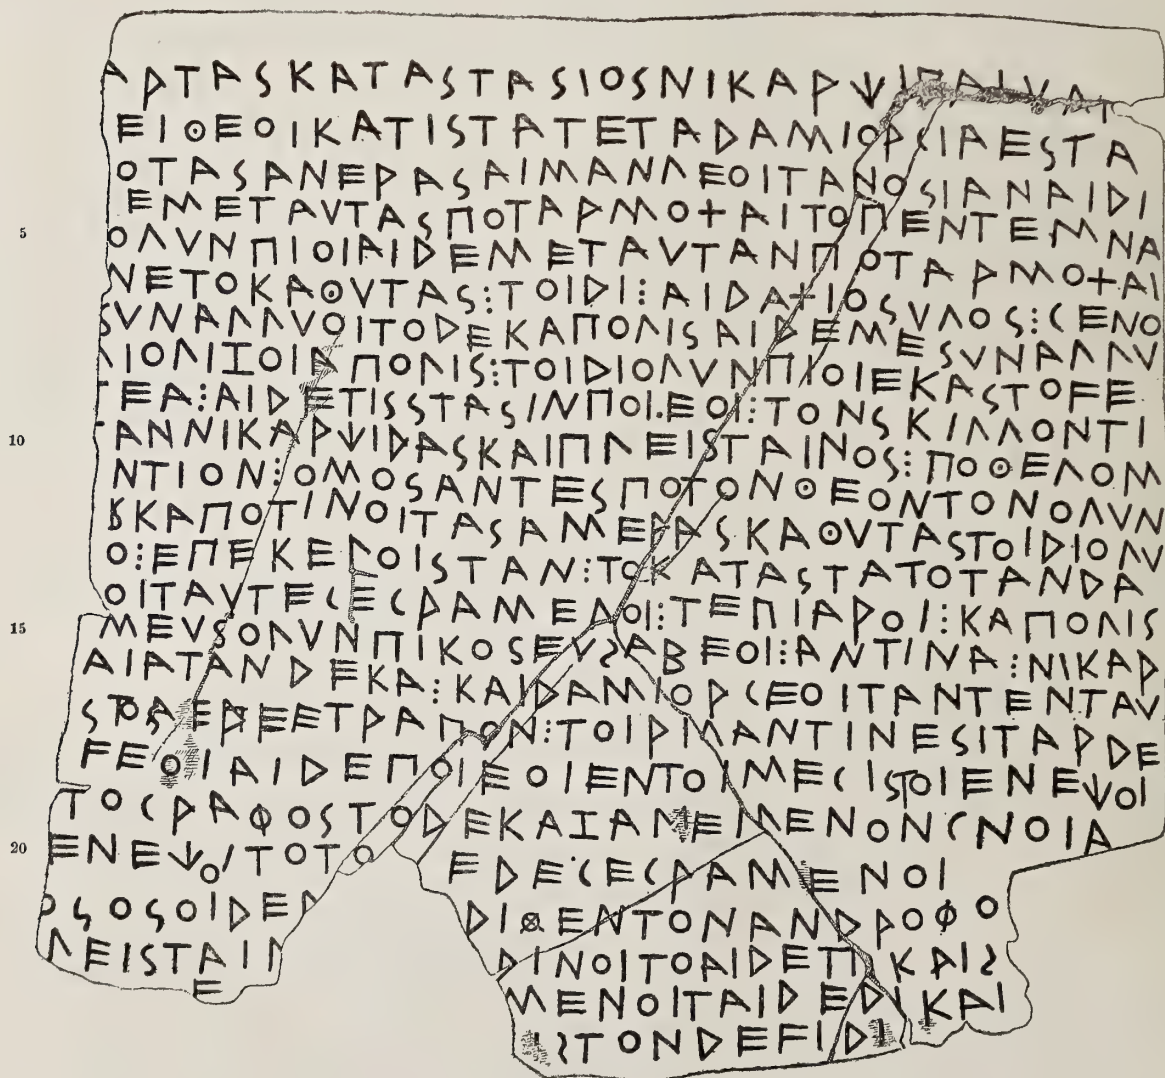 ΑΡΤΑΣΚΑΤΑΣΤΑΣΙΟΣΝΙΚΑΡΨΙΠΑΙΥΑΤ
ΕΙΘΕΟΙΚΑΤΙΣΤΑΤΕΤΑΔΑΜΙΟΡΓΙΑΕΣΤΑ
ΟΤΑΣΑΝΕΡΑΣΑΙΜΑΝΛΕΟΙΤΑΝΟΣΙΑΝΑΙΔΙ
5 ΕΜΕΤΑΥΤΑΣΠΟΤΑΡΜΟ+ΑΙΤΟΠΕΝΤΕΜΝΑ
ΟΛΥΝΠΙΟΙΑΙΔΕΜΕΤΑΥΤΑΝΠΟΤΑΡΜΟ+ΑΙ
ΝΕΤΟΚΑΘΥΤΑΣ⋮ΤΟΙΔΙ⋮ΑΙΔΑ+ΙΟΣΥΛΟΣ⋮ΓΕΝΟ
ΣΥΝΑΛΛΥΟΙΤΟΔΕΚΑΠΟΛΙΣΑΙΔΕΜΕΣΥΝΑΛΛΥ
ΛΙΟΛΙΖΟΙΑΠΟΛΙΣ⋮ΤΟΙΔΙΟΛΥΝΠΙΟΙΕΚΑΣΤΟϜΕ
ΤΕΑ⋮ΑΙΔΕΤΙΣΣΤΑΣΙΝΠΟΙ.ΕΟΙ⋮ΤΟΝΣΚΙΛΛΟΝΤΙ
10 ΤΑΝΝΙΚΑΡΨΙΔΑΣΚΑΙΠΛΕΙΣΤΑΙΝΟΣ⋮ΠΟΘΕΛΟΜ
ΝΤΙΟΝ⋮ΟΜΟΣΑΝΤΕΣΠΟΤΟΝΘΕΟΝΤΟΝΟΛΥΝ
ΚΑΠΟΤΙΝΟΙΤΑΣΑΜΕΡΑΣΚΑΘΥΤΑΣΤΟΙΔΙΟΛΥ
Ο⋮ΕΠΕΚΕΡΟΙΣΤΑΝ⋮ΤΟΚΑΤΑΣΤΑΤΟΤΑΝΔΑ
ΟΙΤΑΥΤΕΓΕΓΡΑΜΕΝΟΙ⋮ΤΕΠΙΑΡΟΙ⋮ΚΑΠΟΛΙΣ
15 ΜΕΥΣΟΛΥΝΠΙΚΟΣΕΥΣΑΒΕΟΙ⋮ΑΝΤΙΝΑ⋮ΝΙΚΑΡ
ΑΙΑΤΑΝΔΕΚΑ⋮ΚΑΙΔΑΜΙΟΡΓΕΟΙΤΑΝΤΕΝΤΑΥ
ΣΤΟΣΑΕΡΕΕΤΡΑΠΟΝ⋮ΤΟΙΡΜΑΝΤΙΝΕΣΙΤΑΡΔΕ
ϜΕΟΙΑΙΔΕΠΟΙΕΟΙΕΝΤΟΙΜΕΓΙΣΤΟΙΕΝΕΨΟΙ
ΤΟΓΡΑΦΟΣΤΟΔΕΚΑΙΖΑΜΕΜΕΝΟΝΓΝΟΙΑ
20 ΕΝΕΨΟΙΤΟΤΟ ΕΔΕΓΕΓΡΑΜΕΝΟΙ
ΟΣΟΣΟΙΔΕΝ ΔΙΘΕΝΤΟΝΑΝΔΡΟΦΟ
ΛΕΙΣΤΑΙΝ ΔΙΝΟΙΤΟΑΙΔΕΠΙΚΑΙΣ
Ε ΜΕΝΟΙΤΑΙΔΕΔΙΚΑΙ
ΙΣΤΟΝΔΕϜΙΔΙ